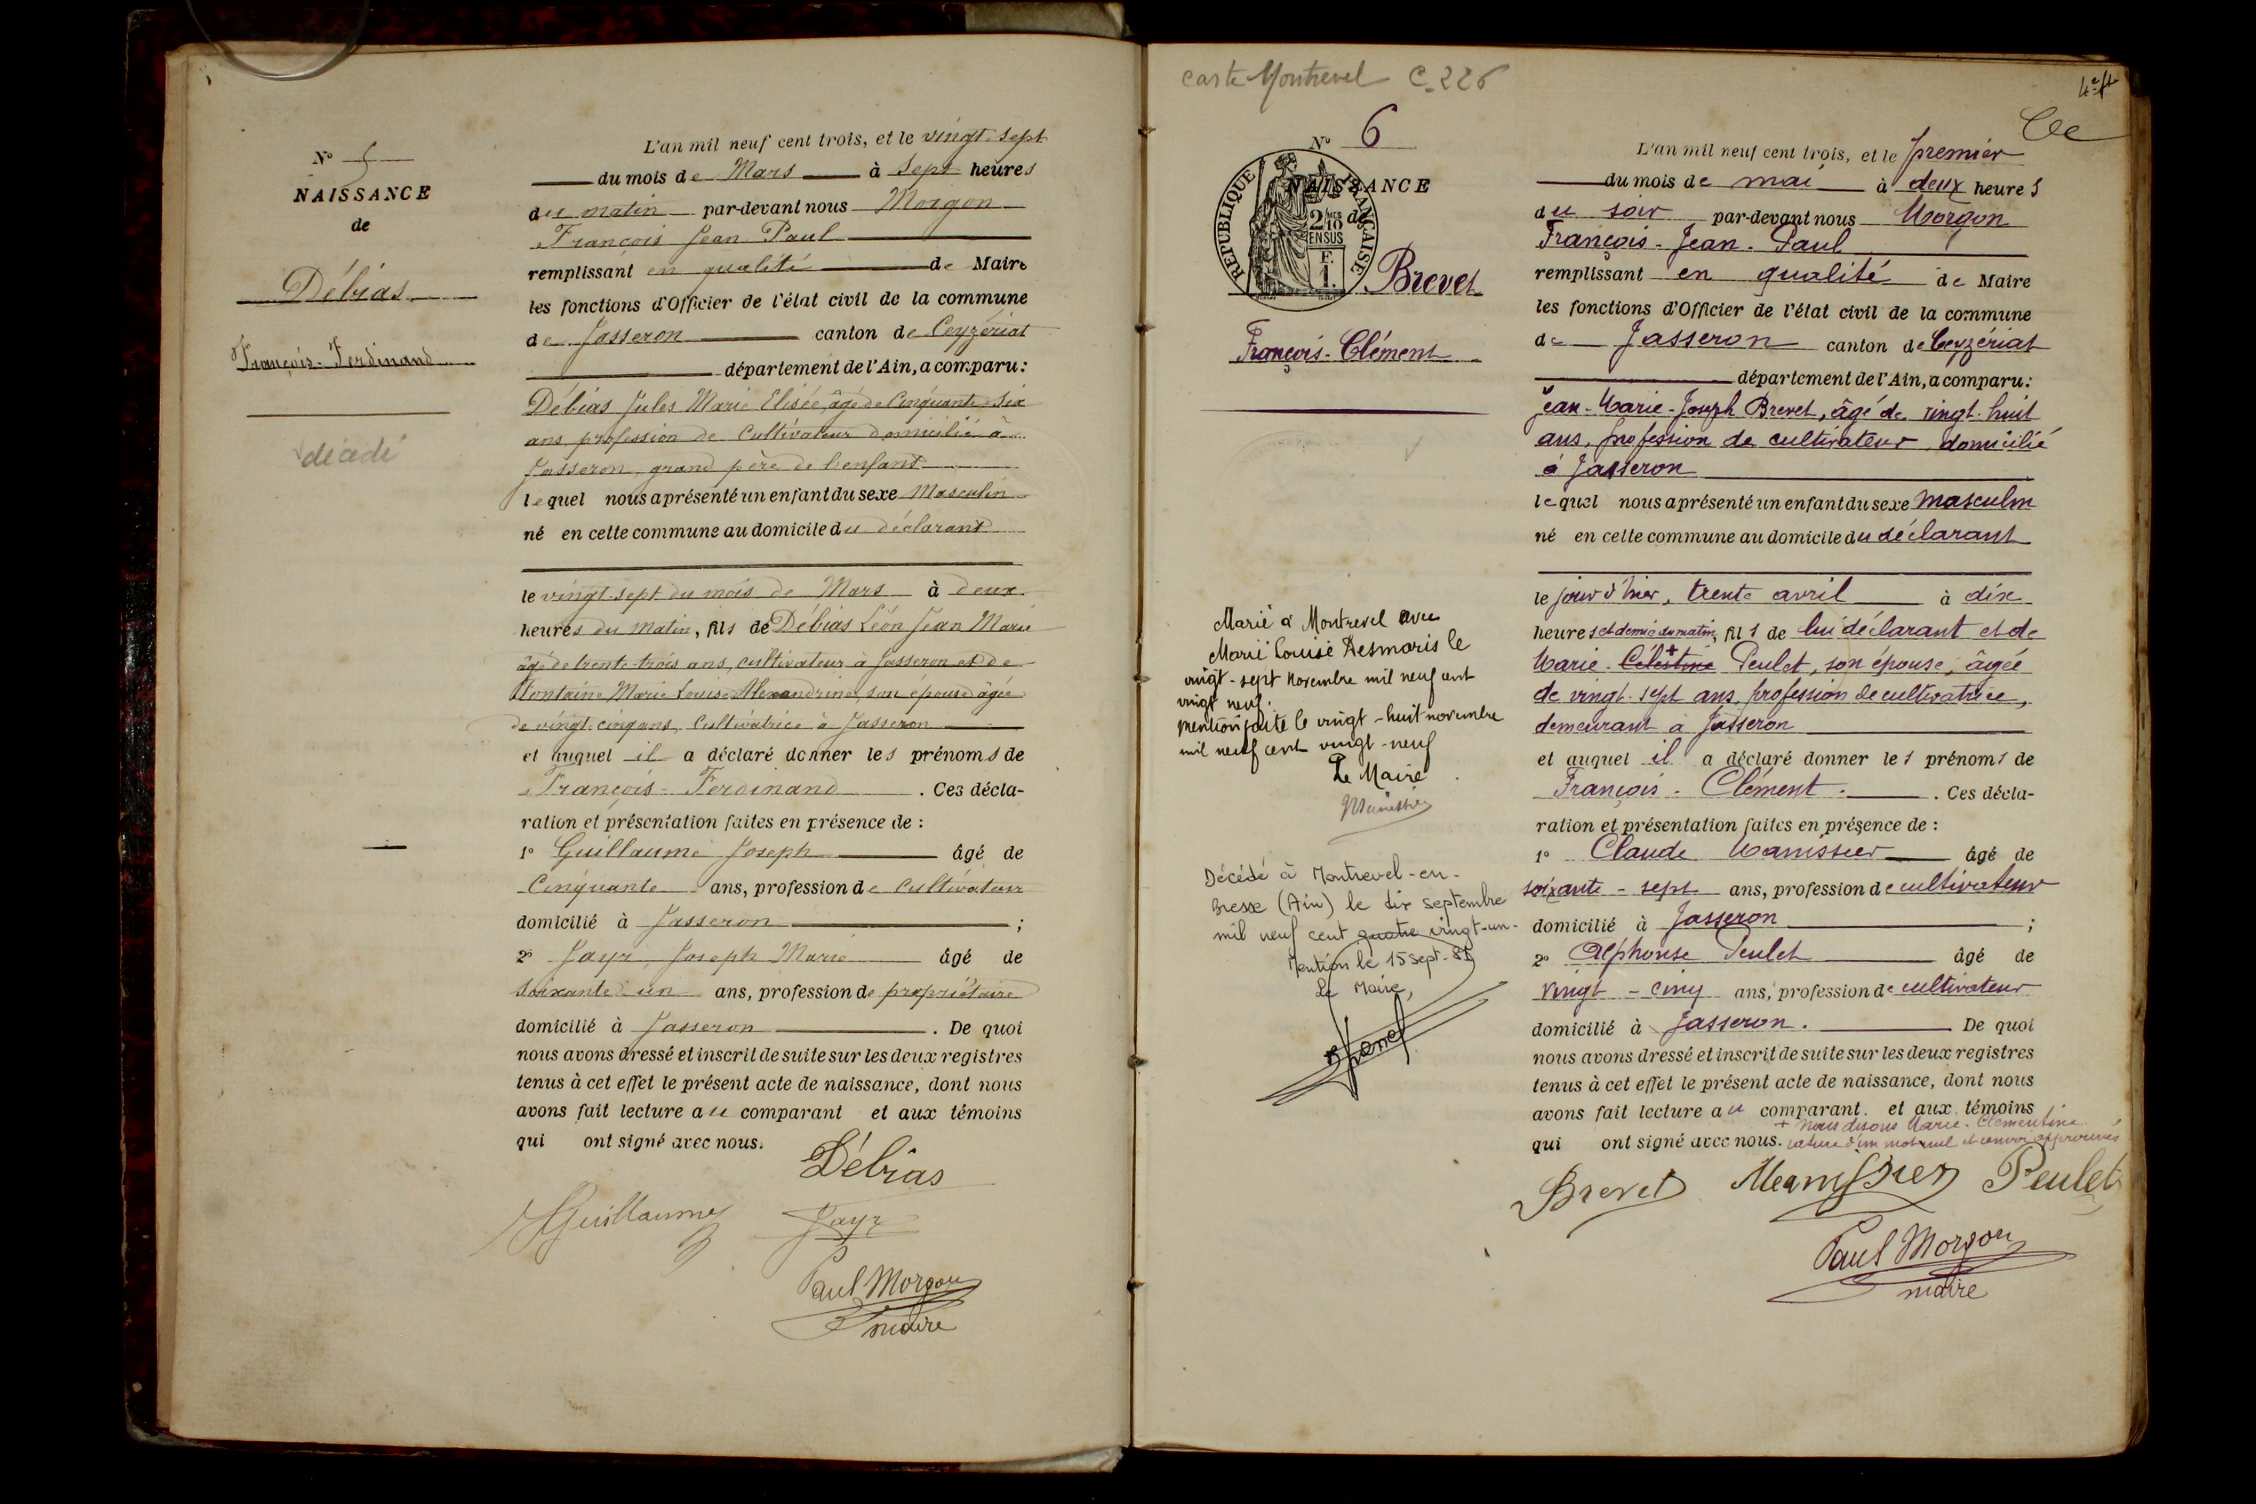 N° 5
NAISSANCE
de
Débias
François-Ferdinand
décédé
L'an mil neuf cent trois, et le vingt-sept
du mois de Mars à Sept heures
du matin par-devant nous Morgon
François Jean Paul
remplissant en qualité de Maire
les fonctions d'Officier de l'état civil de la commune
de Jasseron canton de Ceyzériat
département de l'Ain, a comparu:
Débias Jules Marie Elisée, âgé de Cinquante-Six
ans profession de Cultivateur domicilié à
Jasseron grand père de l'enfant
lequel nous a présenté un enfant du sexe Masculin
né en cette commune au domicile du déclarant
le vingt-sept du mois de Mars à deux
heures du matin, fils de Débias Léon Jean Marie
âgé de trente-trois ans, cultivateur à Jasseron et de
Fontaine Marie Louise Alexandrine, son épouse âgée
de vingt-cinq ans, Cultivatrice à Jasseron
et auquel il a déclaré donner les prénoms de
François-Ferdinand. Ces décla-
ration et présentation faites en présence de :
1° Guillaume Joseph âgé de
Cinquante ans, profession de Cultivateur
domicilié à Jasseron ;
2° Jayr Joseph Marie âgé de
Soixante-un ans, profession de propriétaire
domicilié à Jasseron. De quoi
nous avons dressé et inscrit de suite sur les deux registres
tenus à cet effet le présent acte de naissance, dont nous
avons fait lecture au comparant et aux témoins
qui ont signé avec nous.
Débias
Guillaume Jayr
Paul Morgon
maire
carte Montrevel C_226
4
N° 6
NAISSANCE
de
REPUBLIQUE FRANÇAISE
2/10
EN SUS
F.
1.
Brevet
François-Clément
Marié à Montrevel avec
Marie Louise Desmaris le
vingt-sept novembre mil neuf cent
vingt neuf.
mention faite le vingt-huit novembre
mil neuf cent vingt-neuf
Le Maire
Décédé à Montrevel-en-
Bresse (Ain) le dix septembre
mil neuf cent quatre vingt-un.
Mention le 15 sept. 81
Le Maire,
L'an mil neuf cent trois, et le premier
du mois de mai à deux heures
du soir par-devant nous Morgon
François-Jean-Paul
remplissant en qualité de Maire
les fonctions d'Officier de l'état civil de la commune
de Jasseron canton de Ceyzériat
département de l'Ain, a comparu:
Jean-Marie-Joseph Brevet, âgé de vingt-huit
ans, profession de cultivateur domicilié
à Jasseron
lequel nous a présenté un enfant du sexe masculin
né en cette commune au domicile du déclarant
le jour d'hier, trente avril à dix
heures et demie du matin, fils de lui déclarant et de
Marie-Célestine + Peulet, son épouse, âgée
de vingt-sept ans, profession de cultivatrice,
demeurant à Jasseron
et auquel il a déclaré donner les prénoms de
François-Clément. Ces décla-
ration et présentation faites en présence de :
1° Claude Manissier âgé de
soixante-sept ans, profession de cultivateur
domicilié à Jasseron ;
2° Alphonse Peulet âgé de
vingt-cinq ans, profession de cultivateur
domicilié à Jasseron. De quoi
nous avons dressé et inscrit de suite sur les deux registres
tenus à cet effet le présent acte de naissance, dont nous
avons fait lecture au comparant. et aux témoins
+ Nous disons Marie-Clémentine.
qui ont signé avec nous. rature d'un mot nul et renvoi approuvés
Brevet Manissier Peulet
Paul Morgon
maire